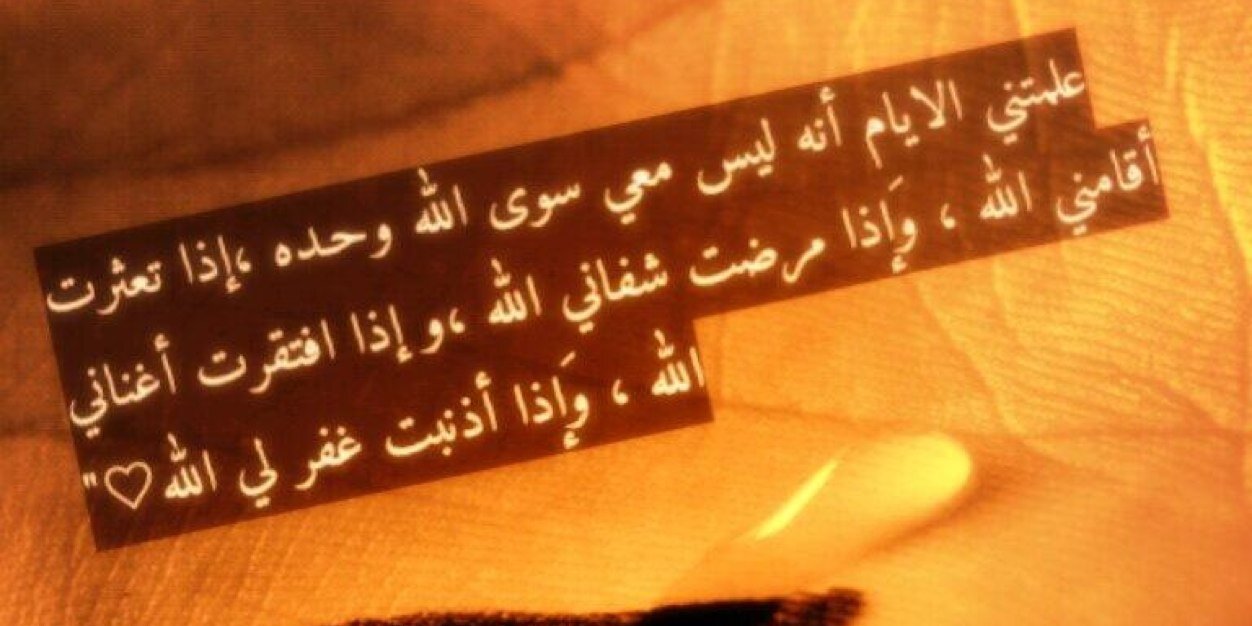 علمتني الايام أنه ليس معي سوى الله وحده ،إذا تعثرت
أقامني الله ، وَإذا مرضت شفاني الله ،و إذا افتقرت أغناني
الله ، وَإذا أذنبت غفر لي الله♡"